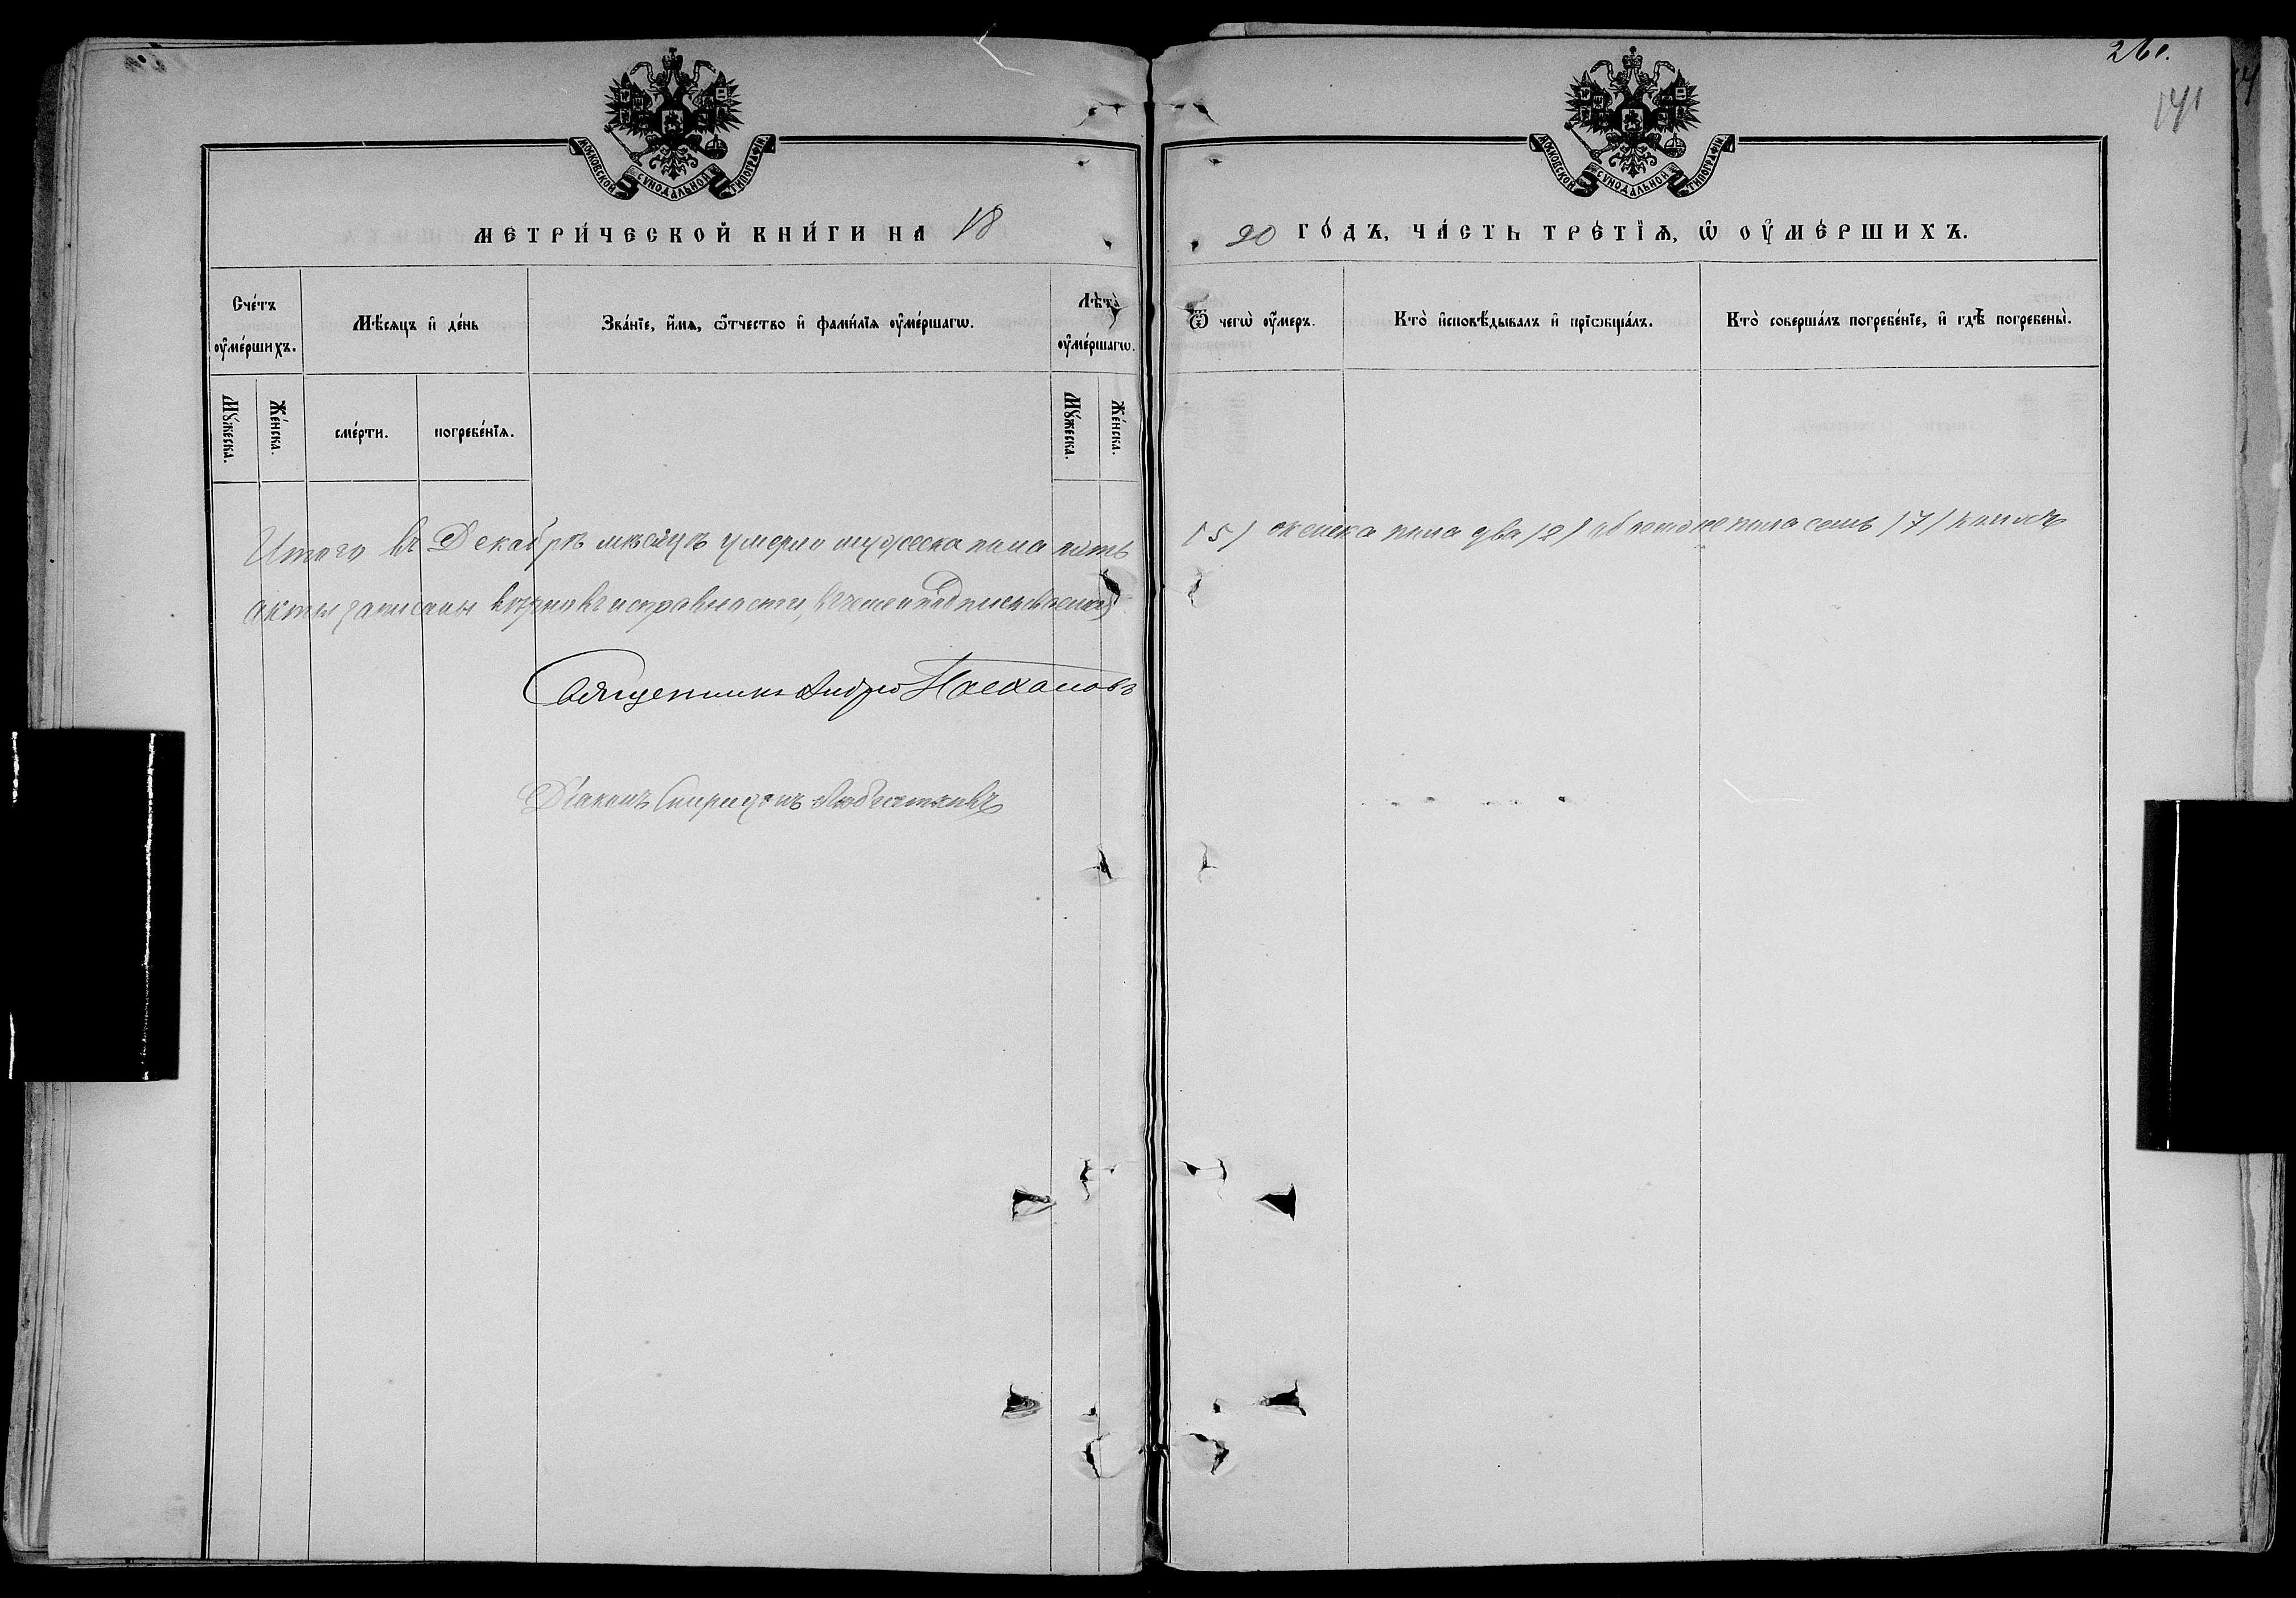 261.
141
МОСКОВСКОЙ СѴНОДАЛЬНОЙ ТИПОГРАФІИ.
МОСКОВСКОЙ СѴНОДАЛЬНОЙ ТИПОГРАФІИ.
МЕТРИ́ЧЕСКОЙ КНИ́ГИ НА 18 90 ГО́ДЪ, ЧА́СТЬ ТРЕ́ТІѦ, Ѡ ОУ҆МЕ́РШИХЪ.
Сче́тъ оу҆ме́ршихъ.
Мѣ́сяцъ и҆ де́нь
Зва́нїе, и҆́мѧ, ѻ҆́тчество и҆ фами́лїѧ оу҆ме́ршагѡ.
Лѣ́та оу҆ме́ршагѡ.
Ѿ чегѡ̀ оу҆́меръ.
Кто̀ и҆сповѣ́дывалъ и҆ прїѡбща́лъ.
Кто̀ соверша́лъ погребе́нїе, и҆ гдѣ̀ погребены̀.
Мꙋ́жеска.
Же́нска.
сме́рти.
погребе́нїѧ.
Мꙋ́жеска.
Же́нска.
Итого въ Декабрѣ мѣсяцѣ умерло мужеска пола пять /5/ женска пола два /2/ обоего же пола семь /7/ коихъ
акты записаны вѣрно въ исправности, въ чемъ и подписываемся
Священникъ Андрей
Діаконъ Спиридонъ